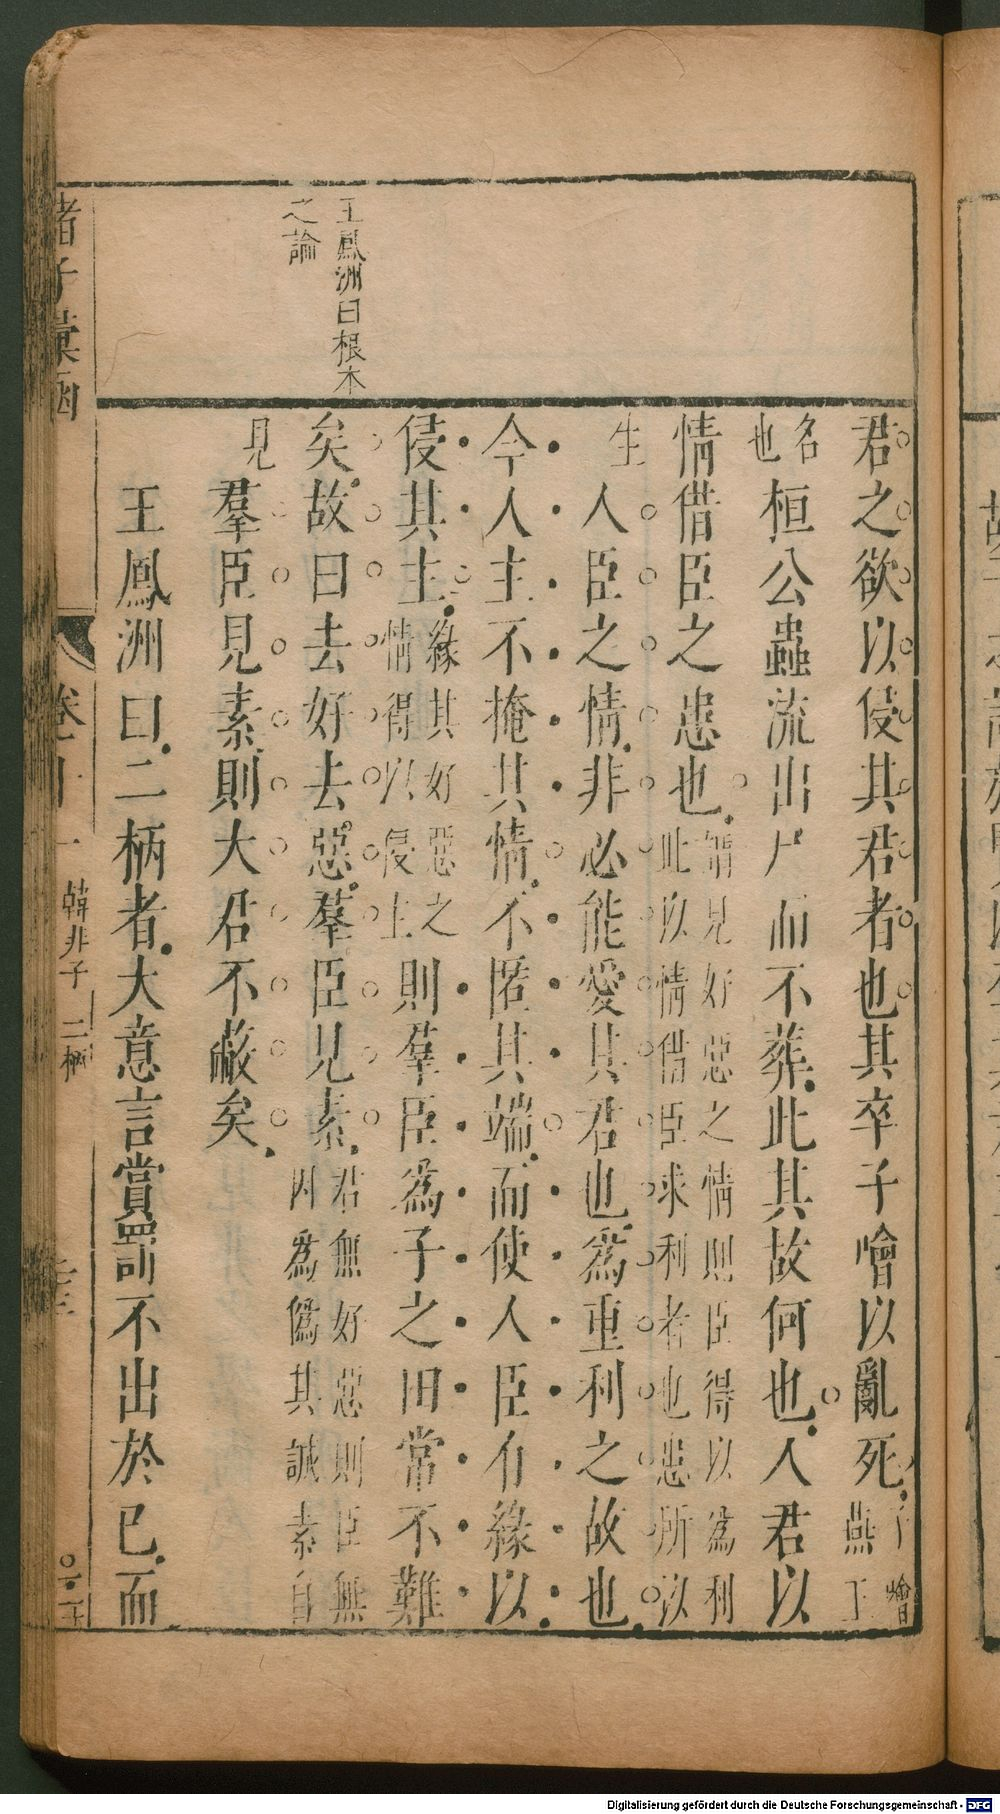 王鳳洲曰根本
之論
君之欲以侵其君者也其卒子噲以亂死子噲燕王
名也桓公蟲流出尸而不葬此其故何也人君以
情借臣之患也謂見好惡之情則臣得以為利此以情借臣求利者也患所以
生人臣之情非必能愛其君也為重利之故也
今人主不掩其情不匿其端而使人臣有緣以
侵其主緣其好惡之情得以侵上則羣臣為子之田常不難
矣故曰去好去惡羣臣見素君無好惡則臣無因為偽其誠素自
見羣臣見素則大君不蔽矣
王鳳洲曰二柄者大意言賞罰不出於已而
諸子彙函
卷十一
韓非子 二柄
Digitalisierung gefördert durch die Deutsche Forschungsgemeinschaft - DFG